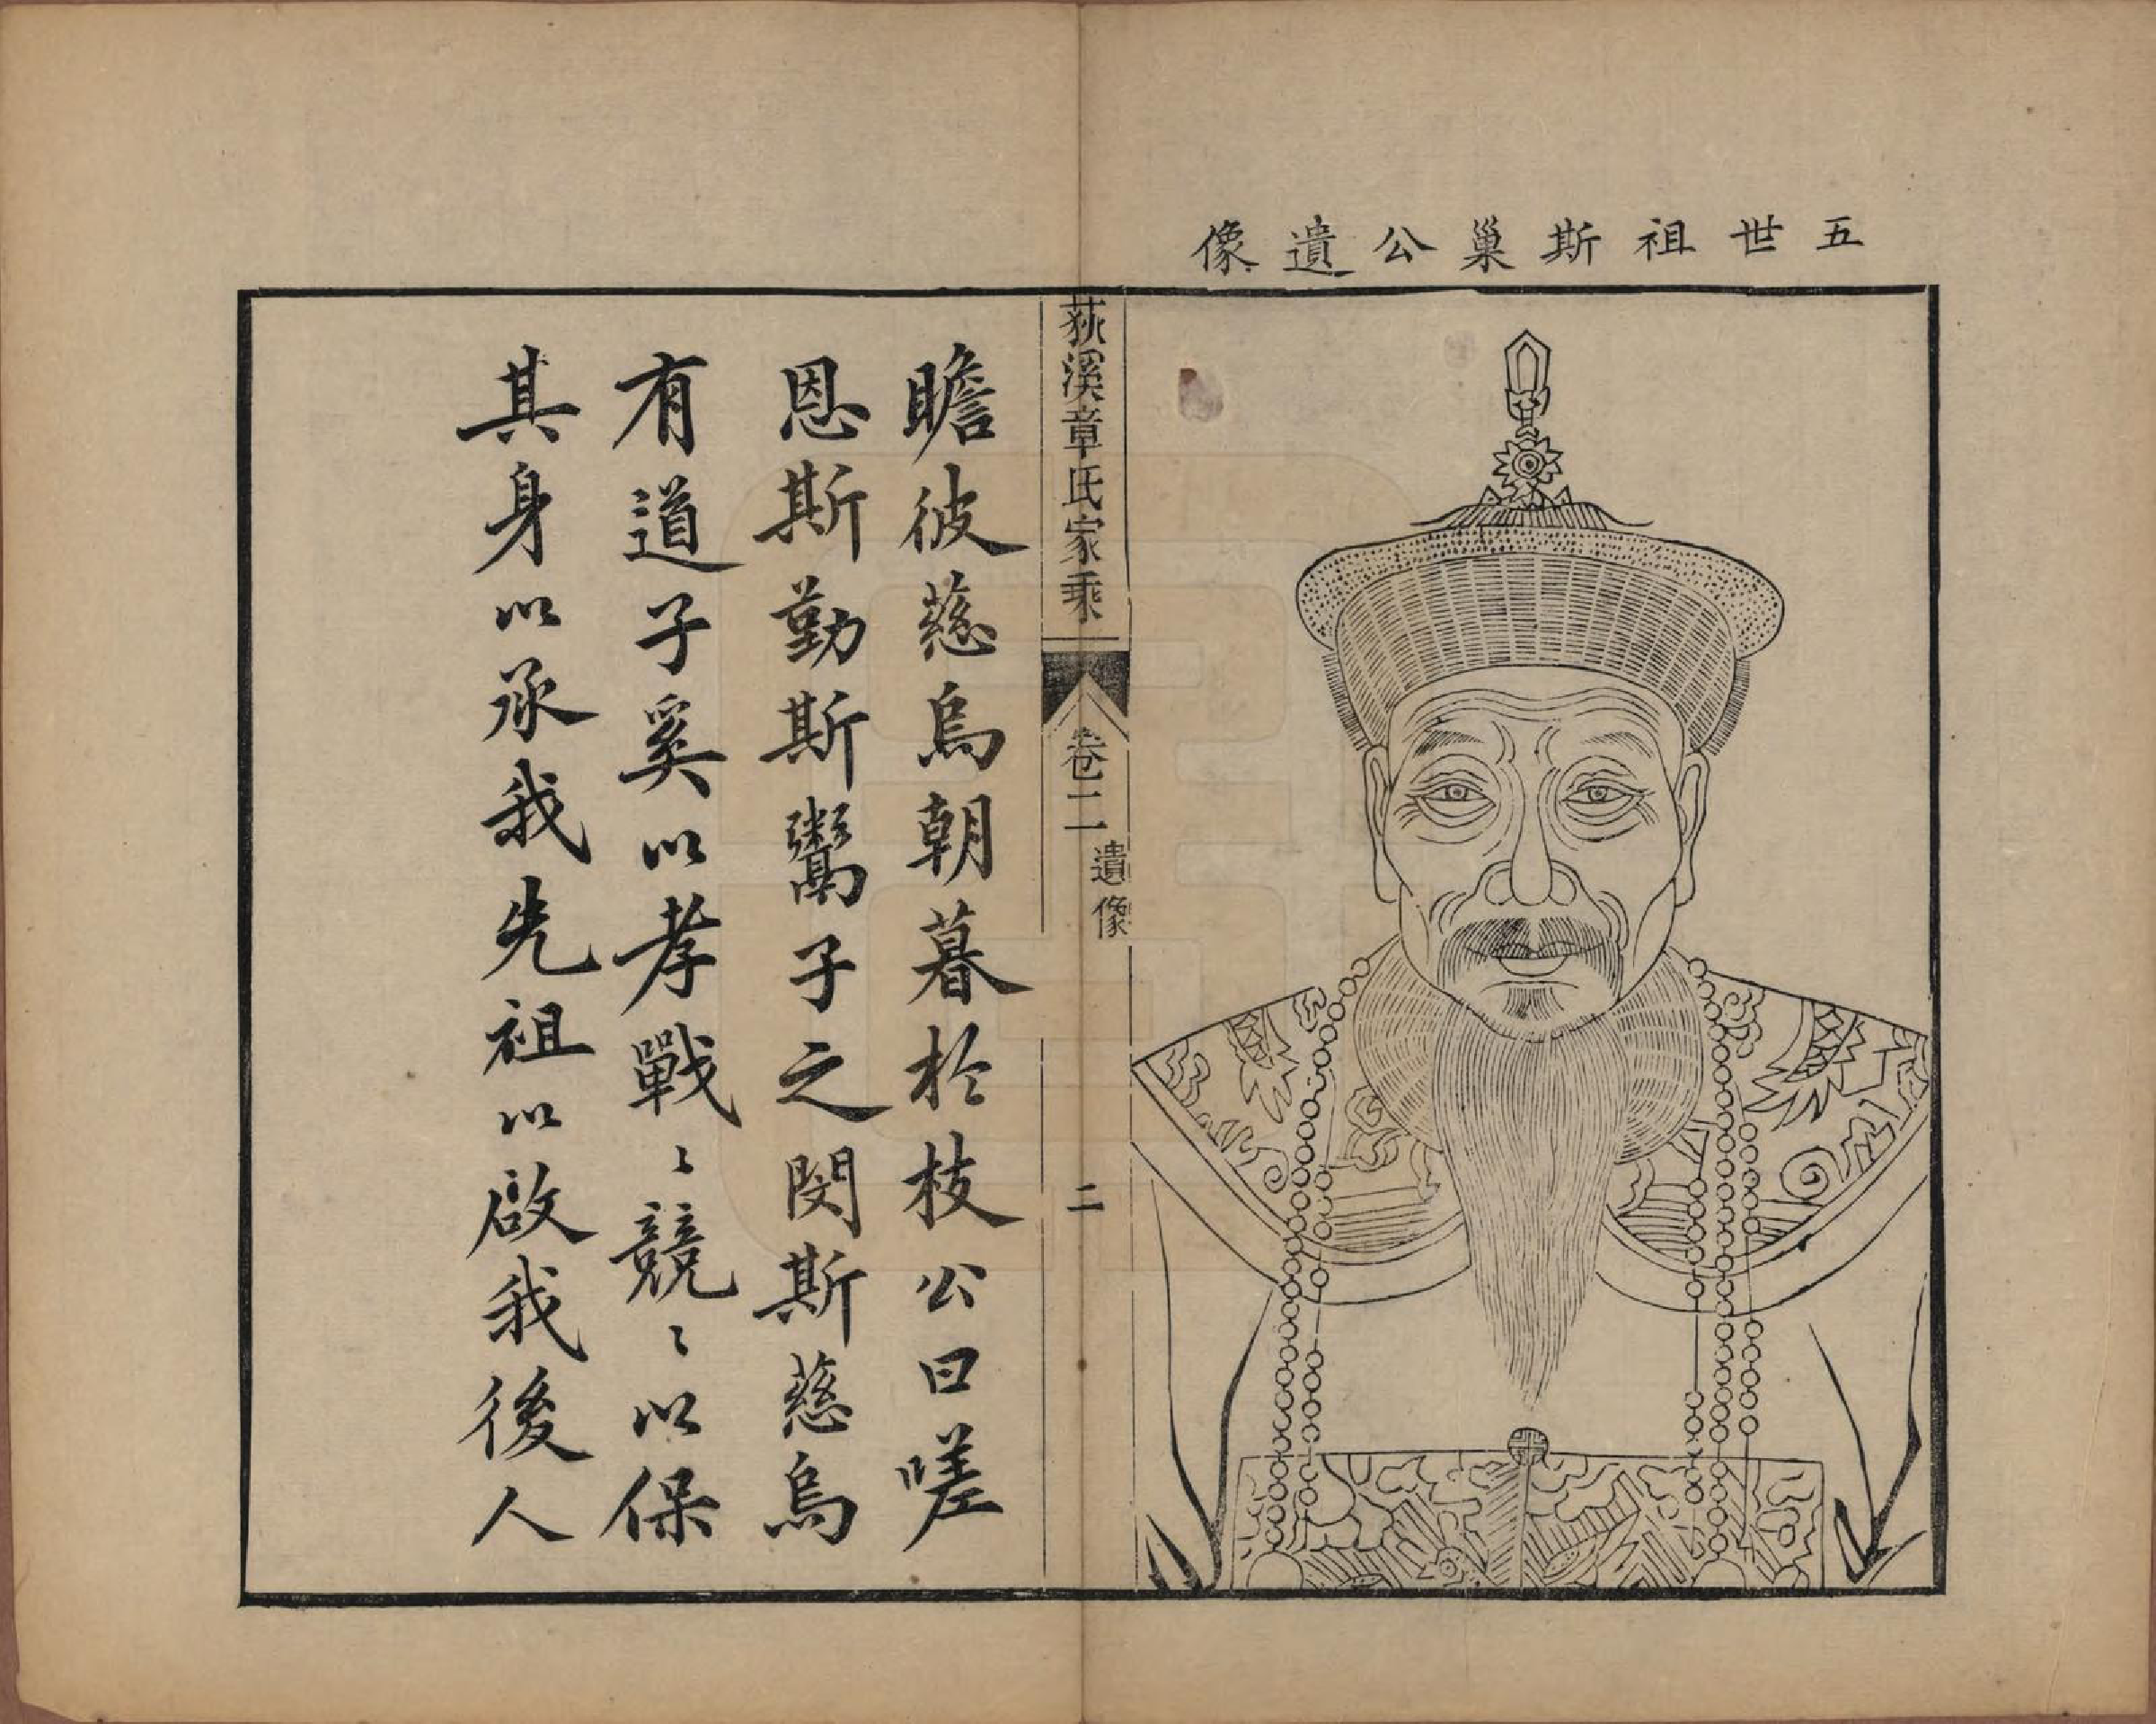 五世祖斯巢公遺像
荻溪章氏家乘
卷二
遺像
二
瞻彼慈烏朝暮於枝公曰嗟
恩斯勤斯鬻子之閔斯慈烏
有道子奚以孝戰〻競〻以保
其身以承我先祖以啟我後人